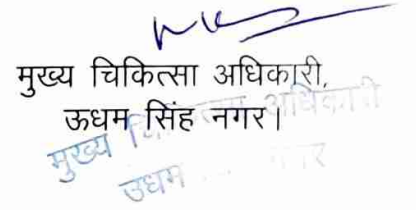 मुख्य चिकित्सा अधिकारी,
ऊधम सिंह नगर।
मुख्य चि अधिकारी
उधम नगर